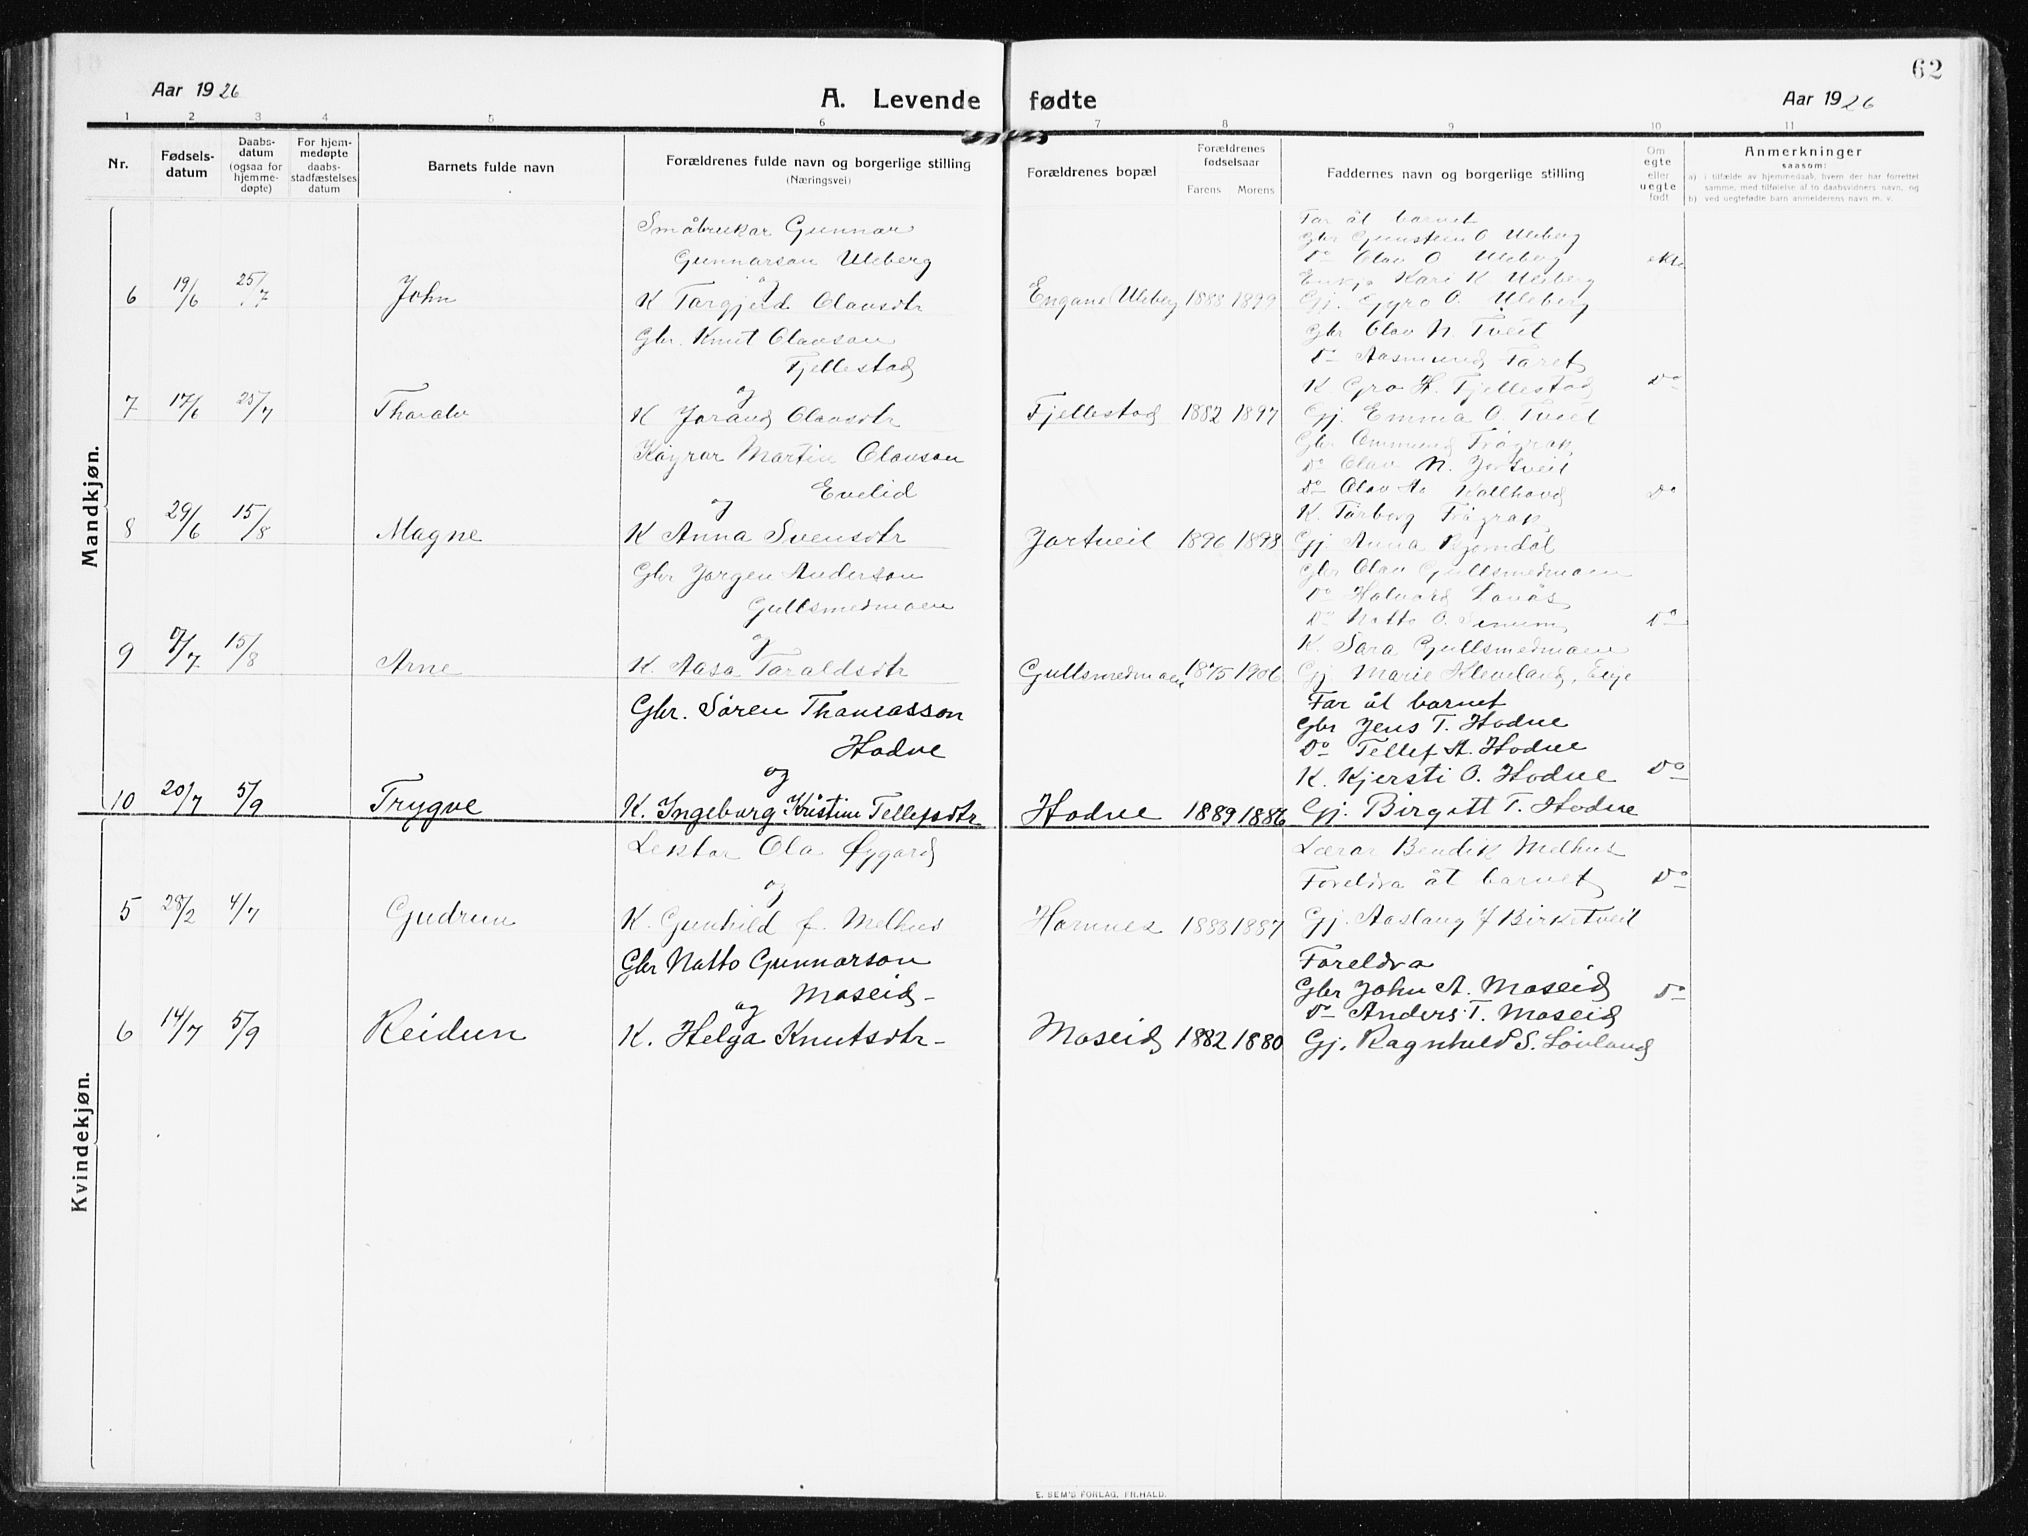 Aar 1926
A. Levende fødte
Aar 1926
62
1 2 3 4 5 6 7 8 9 10 11
Nr.
Fødsels-
datum
Daabs-
datum
(ogsaa for
hjemme-
døpte)
For hjem-
medøpte
daabs-
stadfæstelses
datum
Barnets fulde navn
Forældrenes fulde navn og borgerlige stilling
(Næringsvei)
Forældrenes bopæl
Forældrenes
fødselsaar
Farens Morens
Faddernes navn og borgerlige stilling
Om
egte
eller
uegte
født
Anmerkninger
saasom:
a) i tilfælde av hjemmedaab, hvem der har forrettet
samme, med tilføielse af to daabsvidners navn, og
b) ved uegtefødte barn anmelderens navn m. v.
Mandkjøn.
6 19/6 25/7 John
Småbrukar Gunnar
Gunnarson Uleberg
og
K Targjerd Olavsdtr
Engane Uleberg 1888 1899
Far åt barnet
Gbr Gunstein O Uleberg
Do Olav O Uleberg
Enkja Kari K. Uleberg
Gj. Gyro O. Uleberg
ekte
7 17/6 25/7 Thoralv
Gbr. Knut Olavson
Fjellestad
og
K Jorand Olavsdtr
Fjellestad 1882 1897
Gbr Olav N. Tveit
Do Aasmund Faret
K. Gro H. Fjellestad
Gj. Emma O. Tveit
Do
8 29/6 15/8 Magne
Køyrar Martin Olavson
Evelid
og
K Anna Svensdtr
Jortveit 1896 1898
Gbr Ommund Frøyrak
Do Olav N. Jortveit
Do Olav A. Kallhovd
K. Torborg Frøyrak
Gj. Anna Rjomdal
Do
9 7/7 15/8 Arne
Gbr Jørgen Anderson
Gullsmedmoen
og
K. Aasa Taraldsdtr
Gullsmedmoen 1875 1906
Gbr Olav Gullsmedmoen
Do Halvard Lauås
Do Natto O. Senum
K. Sara Gullsmedmoen
Gj. Marie Kleveland, Evje
Do
10 20/7 5/9 Trygve
Gbr. Søren Thomasson
Hodne
og
K. Ingeborg Kristine Tellefsdtr
Hodne 1889 1886
Far åt barnet
Gbr Jens T. Hodne
Do Tellef A. Hodne
K. Kjersti O. Hodne
Gj. Birgitt T. Hodne
Do
Kvindekjøn.
5 28/2 4/7 Gudrun
Lektor Ola Øygard
og
K. Gunhild f. Melhus
Hornnes 1888 1887
Lærar Bendik Melhus
Foreldra åt barnet
Gj. Aaslaug J Birketveit
Do
6 14/7 5/9 Reidun
Gbr Natto Gunnarson
Moseid -
og
K. Helga Knutsdtr -
Moseid 1882 1880
Foreldra
Gbr John A. Moseid
Do Anders T. Moseid
Gj. Ragnhild S. Løvland
Do
E. SEM'S FORLAG, FR.HALD.